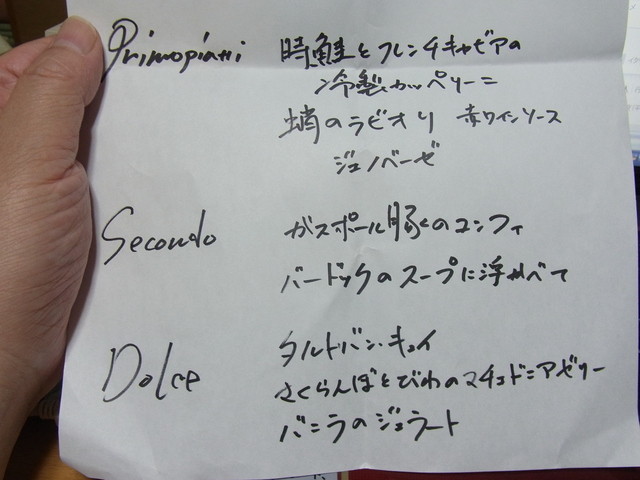 Primopiatti 時鮭とフレンチキャビアの
冷製カッペリーニ
蛸のラビオリ 赤ワインソース
ジェノベーゼ
Secondo ガスポール豚のコンフィ
バードックのスープに浮かべて
Dolce タルトバン・キュイ
さくらんぼとびわのマチェドニアゼリー
バニラのジェラート